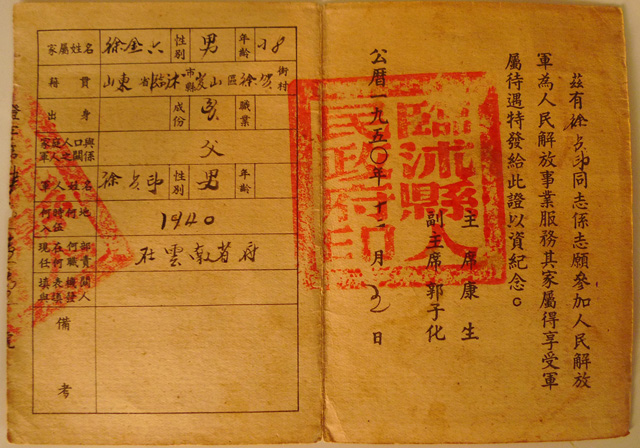 茲有徐貞芾同志係志願參加人民解放
軍為人民解放事業服務其家屬得享受軍
屬待遇特發給此證以資紀念。
主席康生
副主席郭子化
公曆一九五〇年十二月2日
臨沭縣人民政府印
家屬姓名 徐金六 性別 男 年齡 58
籍貫 山東省臨沭市縣岌山區徐 街村
出身 成份 貧 職業
家庭人口與軍人之關係 父
軍人姓名 徐 性別 男 年齡
何時何地入伍 1940
現在何部任何職責 在雲南省府
填表機關與填發人
備考